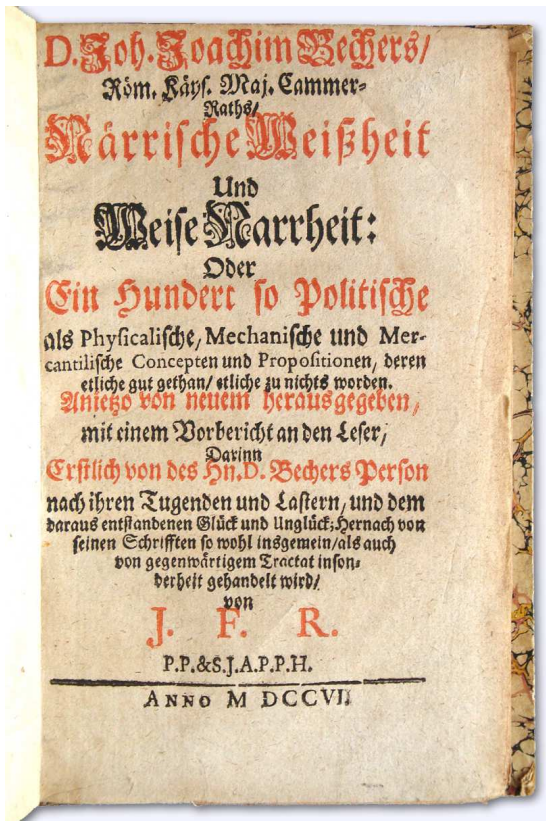 D. Joh. Joachim Bechers/
Röm. Käys. Maj. Cammer-
Raths/
Närrische Weißheit
Und
Weise Narrheit:
Oder
Ein Hundert so Politische
als Physicalische, Mechanische und Mer-
cantilische Concepten und Propositionen, deren
etliche gut gethan/ etliche zu nichts worden.
Anjetzo von neuem herausgegeben,
mit einem Vorbericht an den Leser,
Darinn
Erstlich von des Hn. D. Bechers Person
nach ihren Tugenden und Lastern, und dem
daraus entstandenen Glück und Unglück; Hernach von
seinen Schrifften so wohl insgemein/als auch
von gegenwärtigem Tractat inson-
derheit gehandelt wird/
von
J. F. R.
P.P.&S.J.A.P.P.H.
ANNO M DCCVII